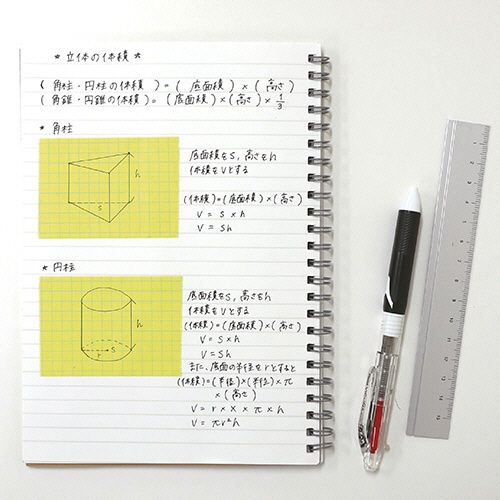 * 立体の体積 *
(角柱・円柱の体積)=(底面積)×(高さ)
(角錐・円錐の体積)=(底面積)×(高さ)×1/3
* 角柱
h
s
底面積をS, 高さをh
体積をVとする
(体積)=(底面積)×(高さ)
V = S × h
V = Sh
* 円柱
h
r S
底面積をS, 高さをh
体積をVとする
(体積)=(底面積)×(高さ)
V = S × h
V = Sh
また、底面の半径をrとすると
(体積)=(半径)×(半径)×π
×(高さ)
V = r × r × π × h
V = πr²h
1 2 3 4 5 6 7 8 9 10 11 12 13 14 15